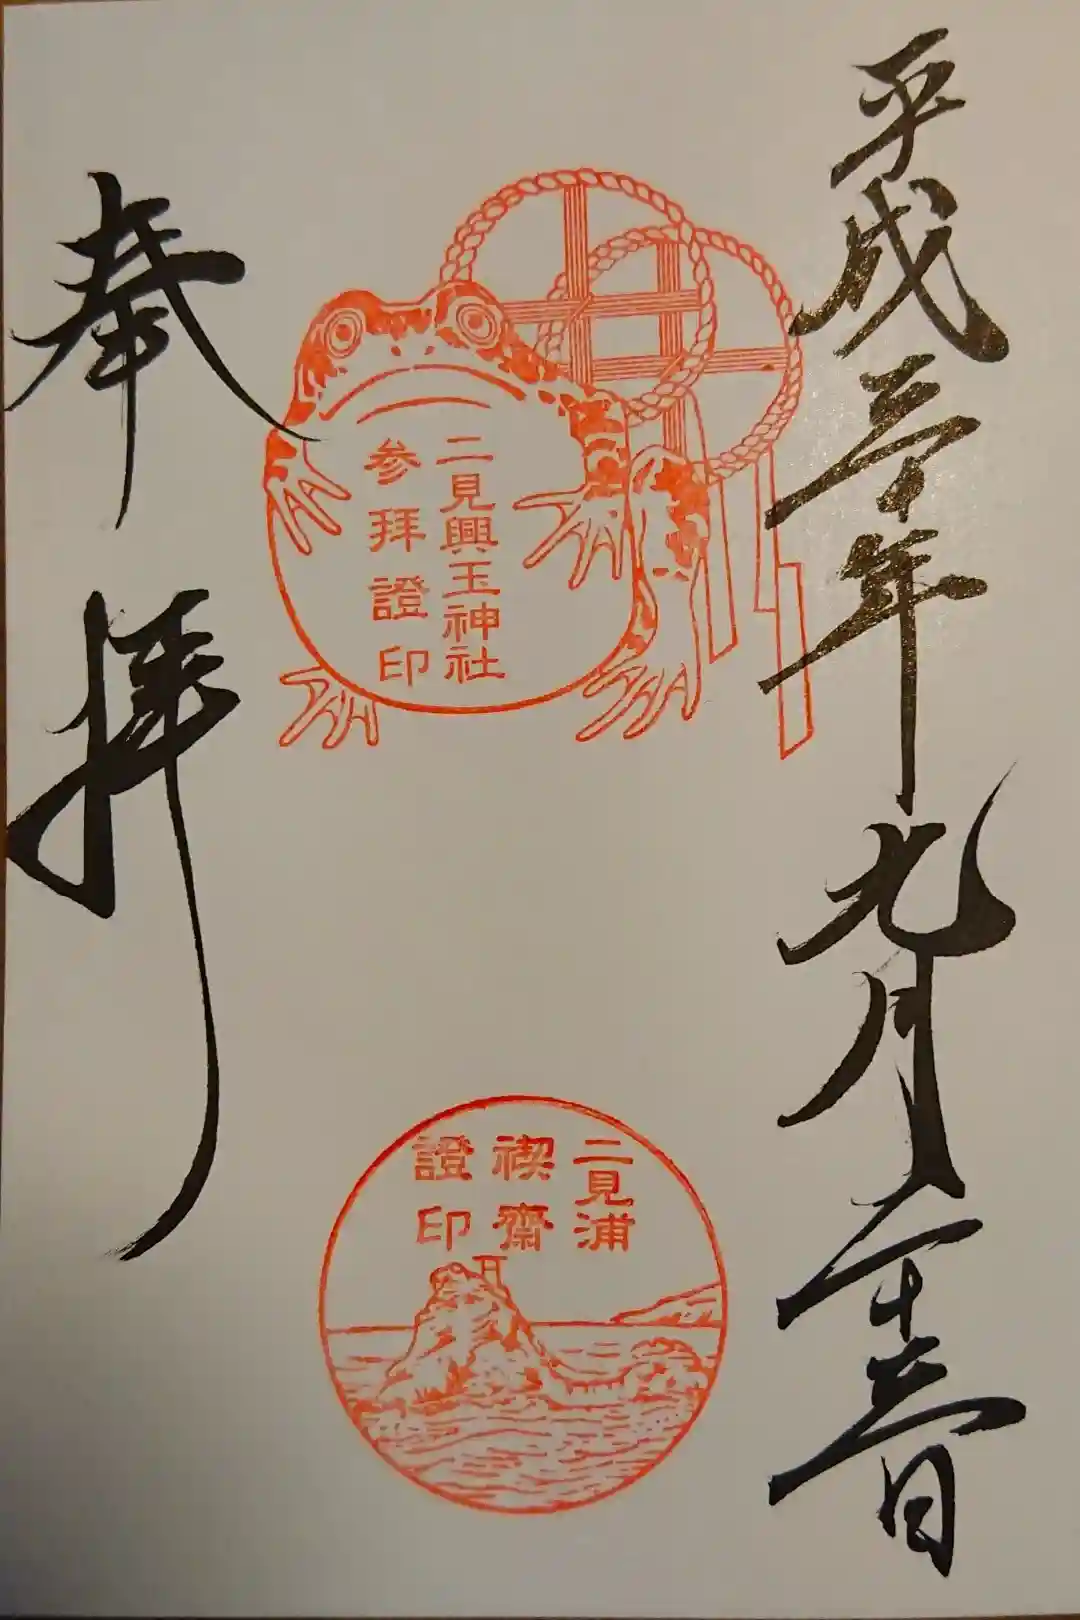 平成三十年九月二十三日
二見興玉神社
参拜證印
二見浦
禊齋
證印
奉拝